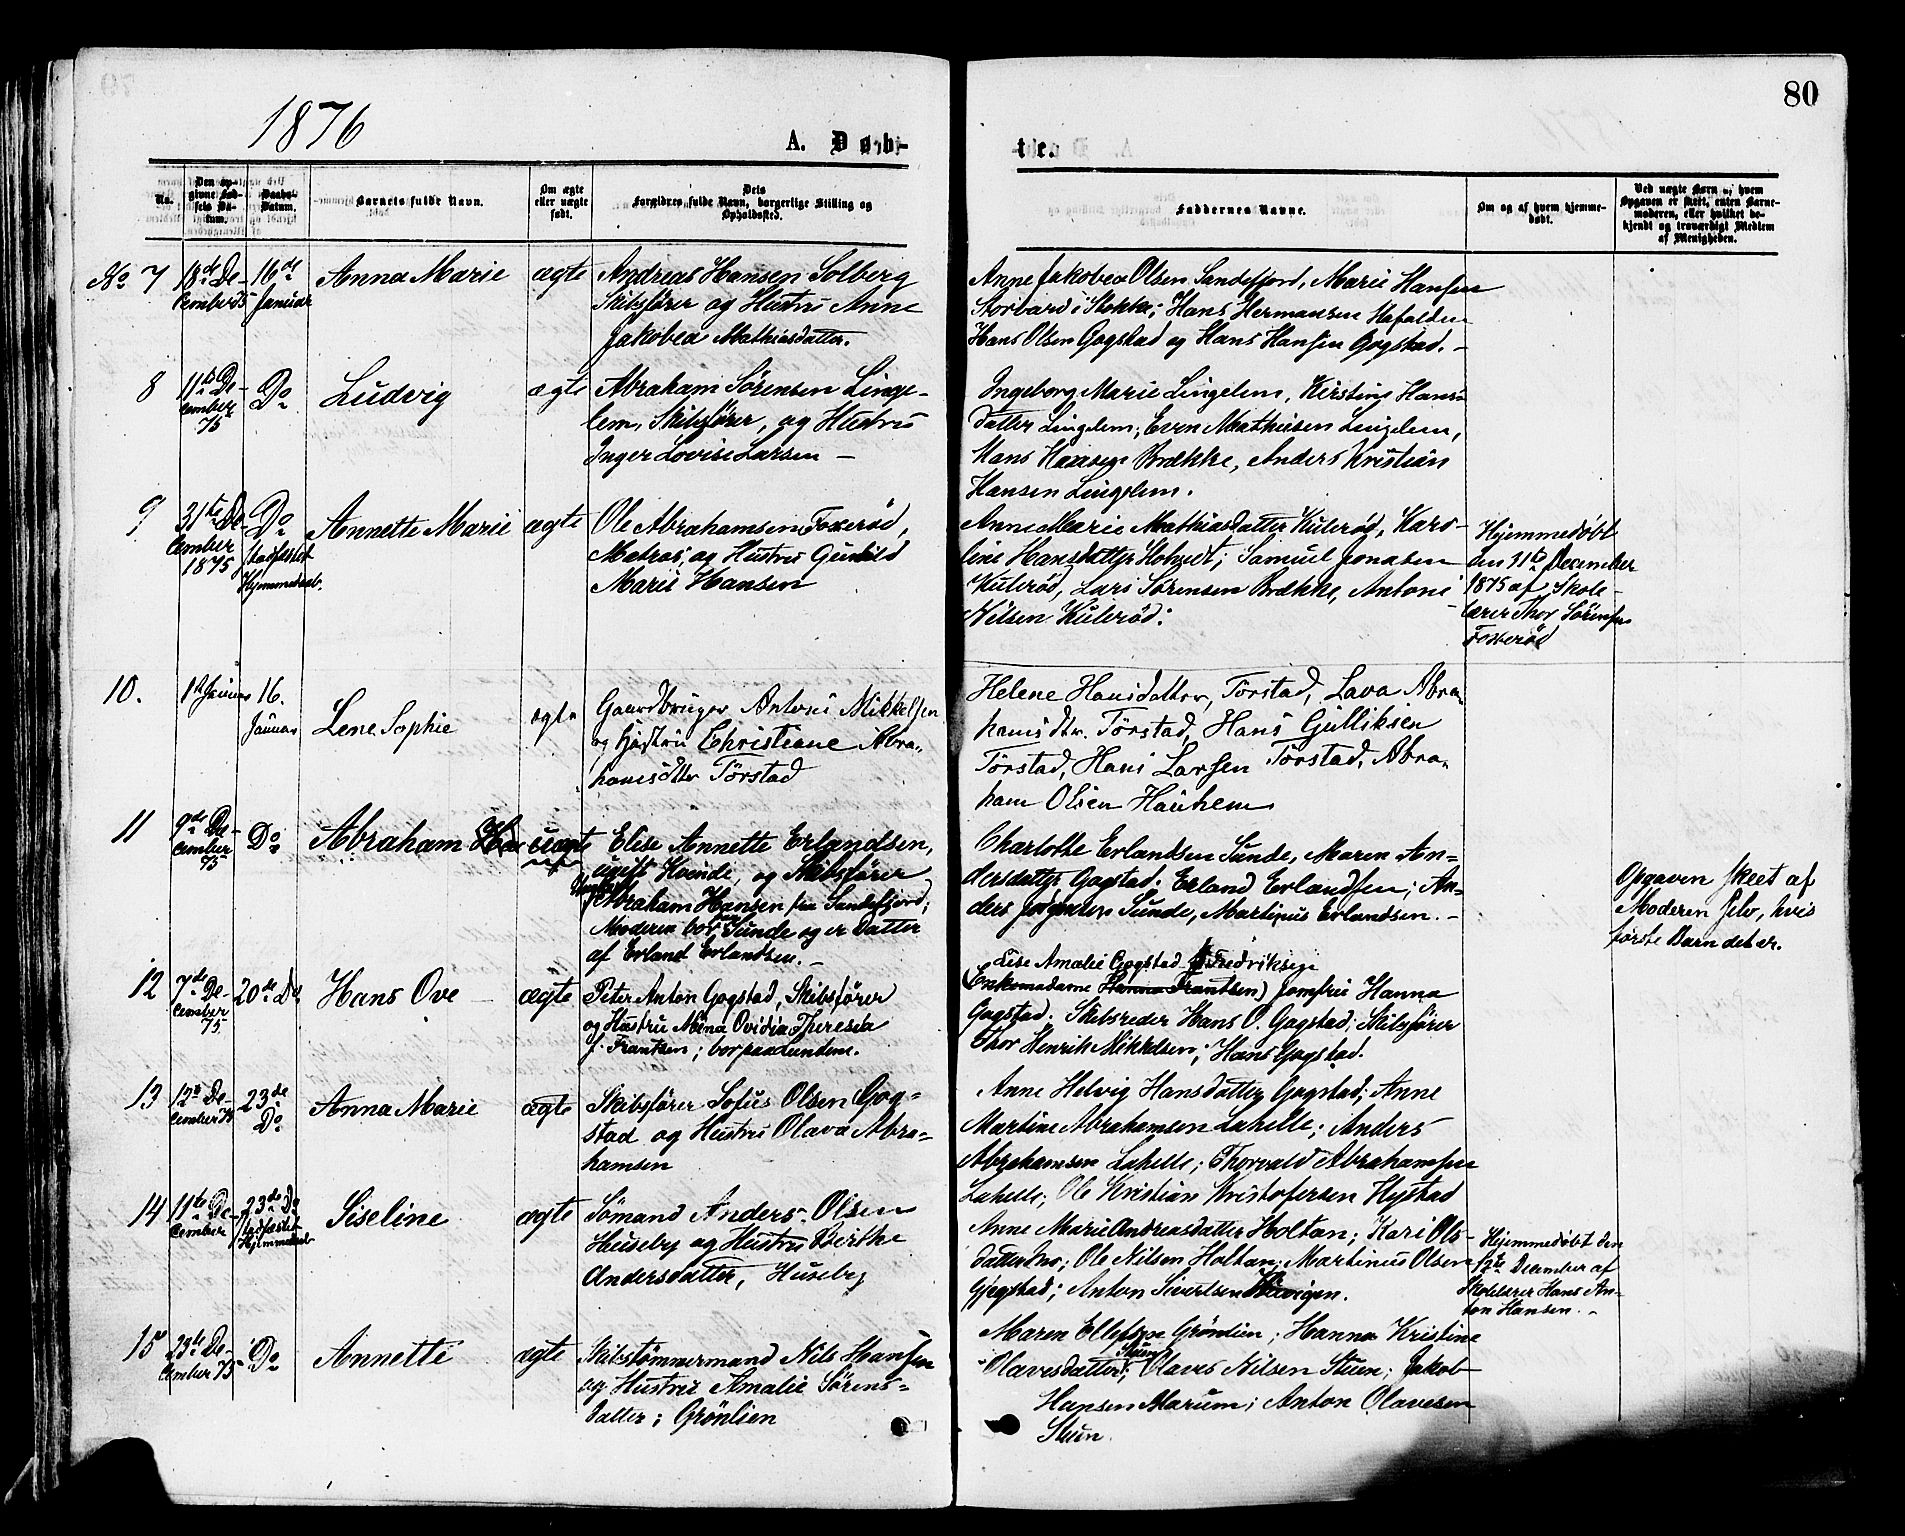 1876
80
A. Døb-
te.
No.
Den op-
givne Fød-
sels Da-
tum.
Daabs-
Datum.
Barnets fulde Navn.
Om ægte
eller uægte
født.
Dets
Forældres fulde Navn, borgerlige Stilling og
Opholdssted.
Faddernes Navne.
Om og af hvem hjemme-
døbt.
Ved uægte Børn
Opgaven er skeet, enten Barne-
moderen, eller hvilket be-
kjendt og troværdigt Medlem
af Menigheden.
No 7
18de De-
cember 75
16de
Januar
Anna Marie
ægte
Andreas Hansen Solberg
Skibsfører og Hustru Anne
Jakobea Mathiasdatter.
Anne Jakobea Olsen Sandefjord, Marie Hansen
i Stokke; Hans Hermansen
Hans Olsen Gogstad og Hans Hansen Gogstad. -
8
11te De-
cember
75
Do
Ludvig
ægte
Abraham Sørensen Linge-
lem, Skibsfører, og Hustru
Inger Lovise Larsen -
Ingeborg Marie Lingelem, Kirstine Hans-
datter Lingelem; Even Mathisen Lingelem,
Hans Hansen Brække, Anders Kristian
Hansen Lingelem.
9
31te De-
cember
1875
Do
stadfæstet
Hjemmedaab.
Annette Marie
ægte
Ole Abrahamsen Foxerød,
Matros, og Hustru Gunhild
Marie Hansen
Anne Marie Mathiasdatter Kulerød, Karo-
line Hansdatter; Samuel Jonasen
Kulerød, Lars Sørensen Brække, Antoni
Nilsen Kulerød.
Hjemmedøbt
den 31te December
1875 af Skole-
lærer Thor Sørensen
Foxerød
10.
1st Januar
16.
Januar
Lene Sophie
ægte
Gaardbruger Antoni Mikkelsen
og Hustru Christiane Abra-
hamsdtr Tørstad
Helene Hansdatter, Torstad, Lava Abra-
hamsdtr. Tørstad, Hans Gulliksen
Tørstad, Hans Larsen Tørstad, Abra-
ham Olsen Hauhem
11
9de De-
cember
75
Do
Abraham
uægte
Elise Annette Erlandsen,
ugift Kvinde, og Skibsfører
Ungkarl
Abraham Hansen fra Sandefjord;
Moderen bor paa Sunde og er Datter
af Erland Erlandsen. -
Charlotte Erlandsen Sunde, Maren An-
dersdatter Gogstad; Erland Erlandsen; An-
ders Jørgensen Sunde, Martinus Erlandsen. -
Opgaven skeet af
Moderen selv, hvis
første Barn det er.
12
7de De-
cember
75
20de Do
Hans Ove
ægte
Peter Anton Gogstad, Skibsfører
og Hustru Mina Ovidia Theresia
f. Frantsen; bor paa Lunden.
Lise Amalie Gogstad f. Fredriksen
(Enkemadame Hanna Frantsen) Jomfru Hanna
Gogstad. Skibsreder Hans O. Gogstad; Skibsfører
Thor Henrik Mikkelsen; Hans Gogstad.
13
12te De-
cember 75
23de
Do
Anna Marie
ægte
Skibsfører Sofus Olsen Gog-
stad og Hustru Olava Abra-
hamsen
Anne Helvig Hansdatter Gogstad; Anne
Martine Abrahamsen Lahelle; Anders
Abrahamsen Lahelle; Thorvald Abrahamsen
Lahelle; Ole Kristian Kristofersen Hystad
14
11te De-
cember
23de Do
stadfæstet
Hjemmedaab
Siseline
ægte
Sømand Anders Olsen
Huseby og Hustru Berthe
Andersdatter, Huseby
Anne Marie Andreasdatter Holtan; Kari Ols-
datter Mo; Ole Nilsen Holtan; Martinus Olsen
Gjøgstad; Anton Sivertsen
Hjemmedøbt den
12te December af
Skolelærer Hans An-
ton Hansen. -
15
23de De-
cember 75
Do
Annette
ægte
Skibstømmermand Nils Hansen
og Hustru Amalie Sørens-
datter; Grønlien
Maren Ellefsen Grønlien; Hanna Kristine
Stuen
Olavesdatter; Olaves Nilsen Stuen; Jakob
Hansen Marum; Anton Olavesen
Stuen.